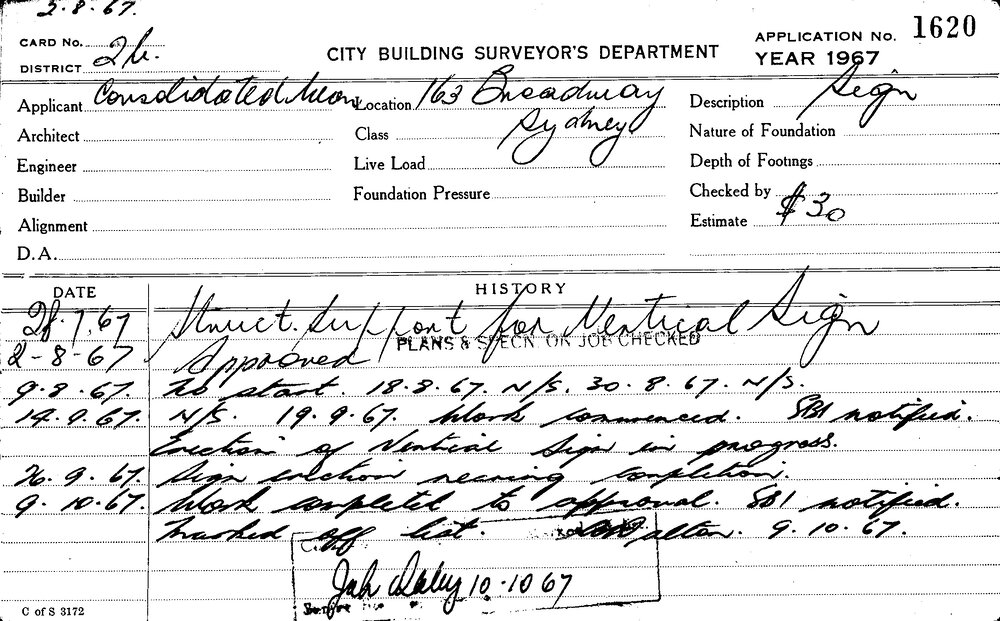 2.8.67.
CARD No. 2h.
DISTRICT
CITY BUILDING SURVEYOR'S DEPARTMENT
APPLICATION No. 1620
YEAR 1967
Applicant Consolidated Neon Location 163 Broadway Description Sign
Architect Class Sydney Nature of Foundation
Engineer Live Load Depth of Footings
Builder Foundation Pressure Checked by
Alignment Estimate $30
D.A.
DATE HISTORY
28.7.67 Struct. Support for Vertical Sign
2-8-67 Approved PLANS & SPECN. ON JOB CHECKED
9.8.67. No start. 18.8.67. N/S. 30.8.67. N/S.
14.9.67. N/S. 19.9.67. Work commenced. SBI notified.
Erection of Vertical Sign in progress.
26.9.67. Sign erection nearing completion.
9.10.67. Work completed to approval. SBI notified.
Marked off list. 9.10.67.
10.10 67
C of S 3172